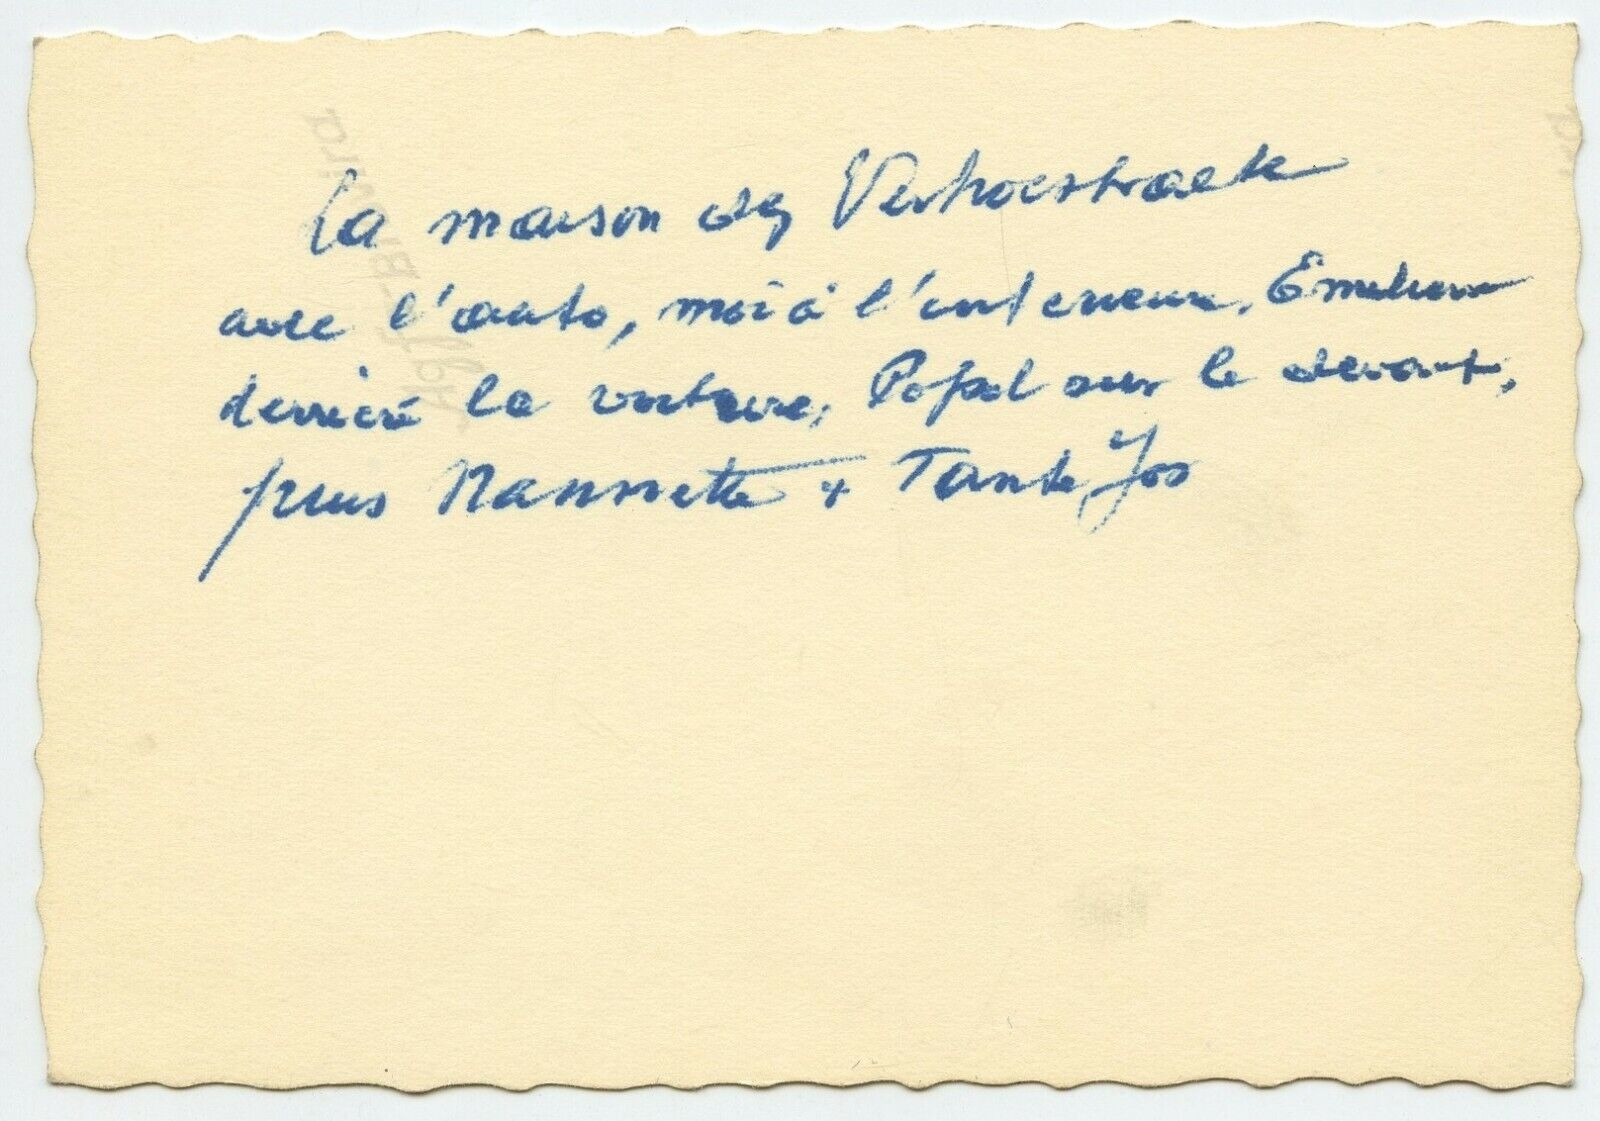 La maison des Verhoestraete
avec l'auto, moi à l'intérieur. Emilienne
derrière la voiture, Popol sur le devant,
puis Nannette + Tante Jos